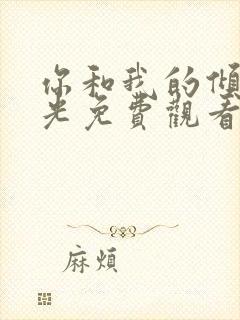 你和我的傾
光免費觀看
麻煩